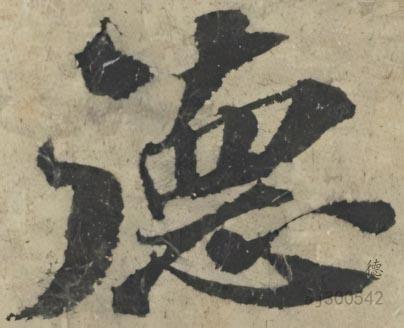 德
德
sj300542